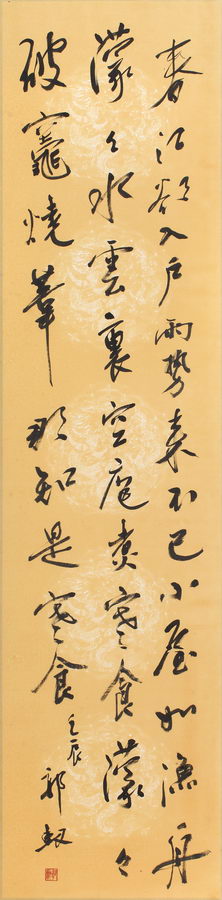 春江欲入戶雨勢來不已小屋如漁舟
濛々水雲裏空庖煮寒食濛々
破竈燒葦那知是寒食
壬辰郭